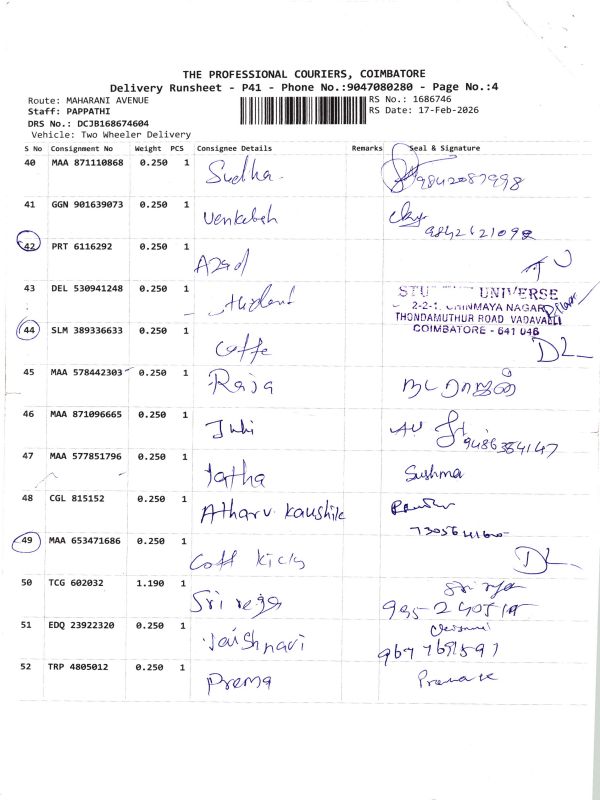 THE PROFESSIONAL COURIERS, COIMBATORE
Delivery Runsheet - P41 - Phone No.:9047080280 - Page No.:4
Route: MAHARANI AVENUE
RS No.: 1686746
Staff: PAPPATHI
RS Date: 17-Feb-2026
DRS No.: DCJB168674604
Vehicle: Two Wheeler Delivery
S No Consignment No Weight PCS Consignee Details Remarks Seal & Signature
40 MAA 871110868 0.250 1 Sudha 9842087998
41 GGN 901639073 0.250 1 Venkatesh
42 PRT 6116292 0.250 1 Azad
43 DEL 530941248 0.250 1
UNIVERSE
CHINMAYA NAGAR
THONDAMUTHUR ROAD VADAVALLI
COIMBATORE - 641 046
44 SLM 389336633 0.250 1 Coffe DL
45 MAA 578442303 0.250 1 Raja நடராஜன்
46 MAA 871096665 0.250 1 Juhi
47 MAA 577851796 0.250 1 Latha Sushma
48 CGL 815152 0.250 1 Atharv Kaushik
49 MAA 653471686 0.250 1 Coff DL
50 TCG 602032 1.190 1 Sri
51 EDQ 23922320 0.250 1 Vaishnavi
52 TRP 4805012 0.250 1 Prema